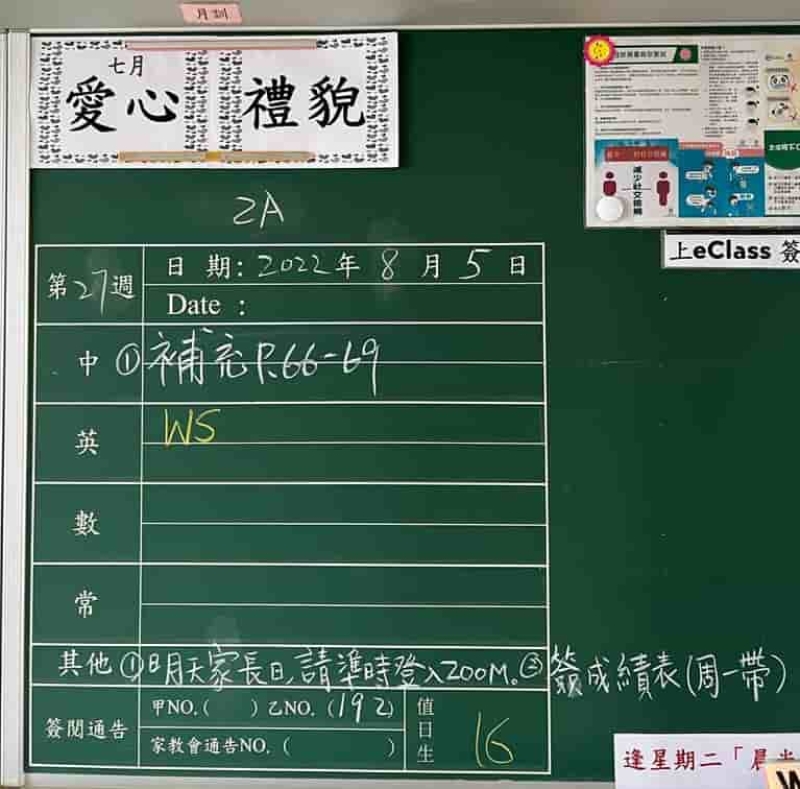 月訓
七月
愛心 禮貌
減少社交接觸
上eClass 簽
2A
第27週
日 期: 2022年 8 月 5 日
Date :
中 ①補充P.66-69
英 WS
數
常
其他 ①明天家長日,請準時登入ZOOM。②簽成績表(周一帶)
簽閱通告
甲NO.( ) 乙NO.(192)
家教會通告NO.( )
值日生 16
逢星期二「晨光
W